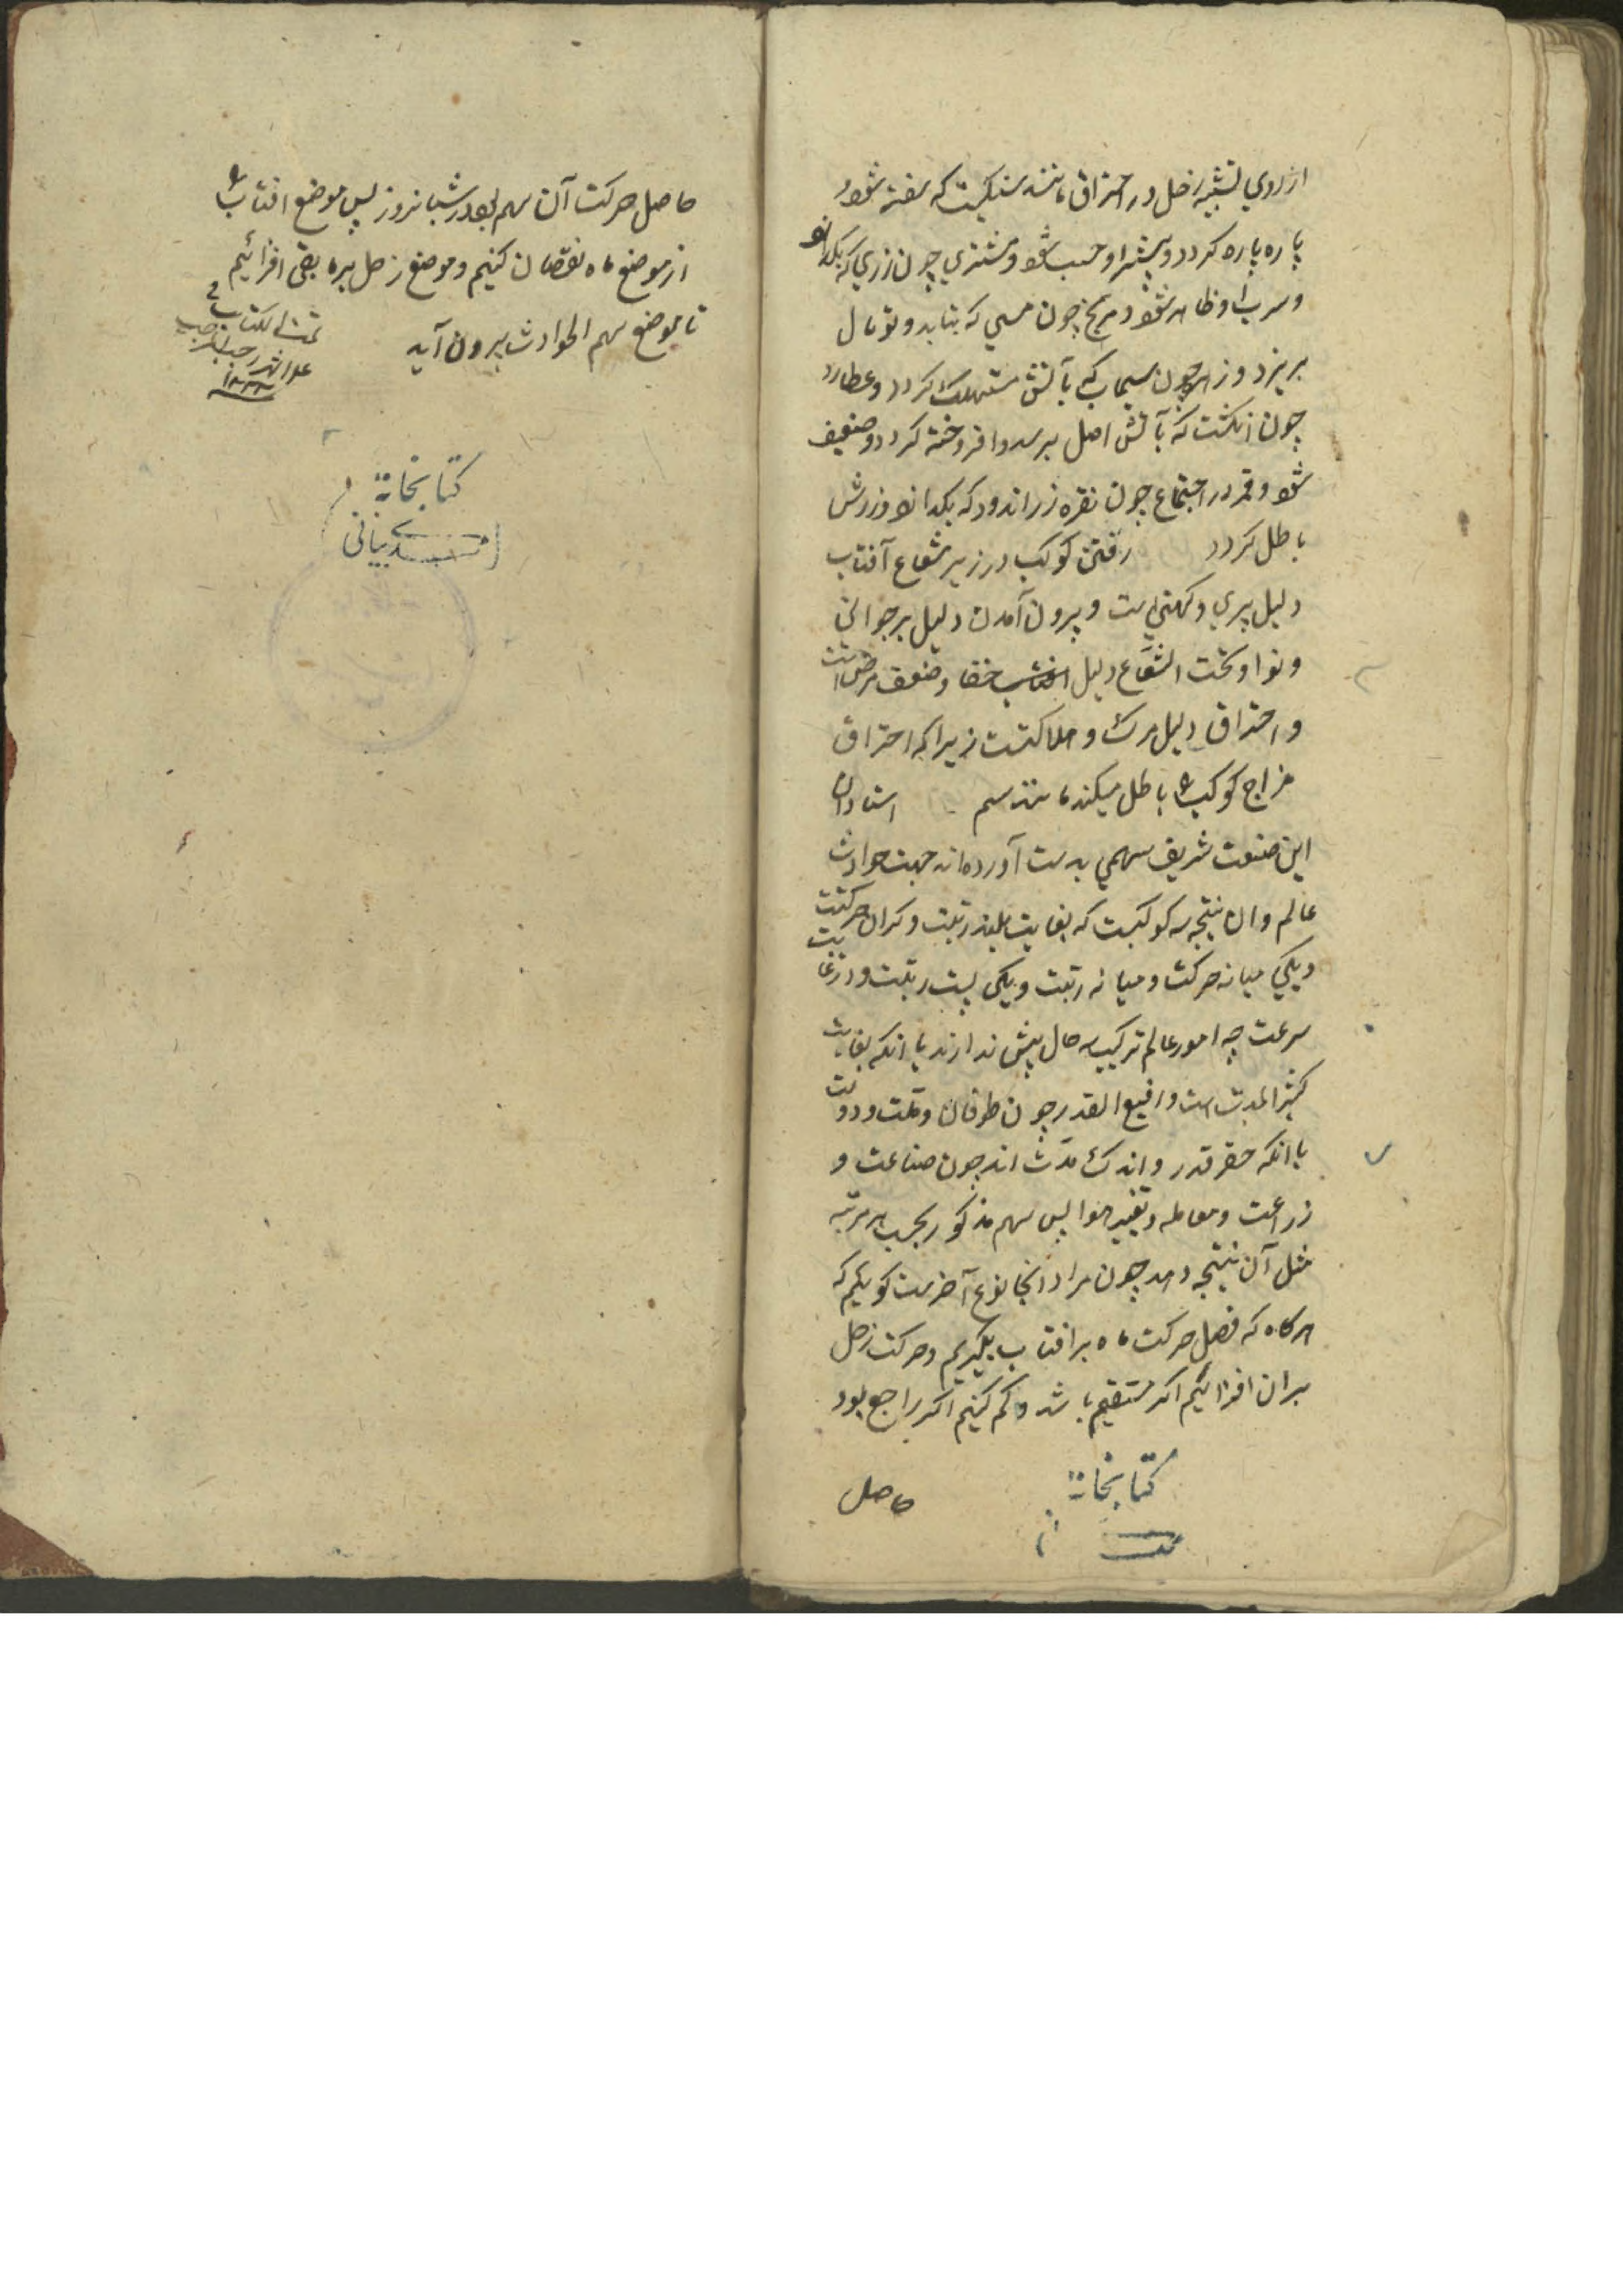 از روی تشبیه زحل در احتراق مانند سنکیست که سفته شود
پاره پاره کردد و بیشتر او حسب شود و مشتری چون زری که بکدازند
و سرب او ظاهر شود و مریخ چون مسی که بتابد و توبال
بریزد و زهره چون سیماب که بآتش مستهلک کردد و عطارد
چون انکشت که بآتش اصل برسد و افروخته کردد و ضعیف
شود و قمر در اجتماع چون نقره زراندود که بکدازند و زرش
باطل کردد رفتن کوکب در زیر شعاع آفتاب
دلیل پیری و کهنی است و بیرون آمدن دلیل بر جوانی
و نوا و تحت الشعاع دلیل خفا و ضعف مرض است
و احتراق دلیل مرک و هلاکتست زیرا که احتراق
مزاج کوکب را باطل میکند مانند سم استادان
این صنعت شریف سهمی بدست آورده‌اند جهت حوادث
عالم و ان نتیجه سه کوکبست که بغایت بلند رتبت و کران حرکتت
و یکی میانه حرکت و میانه رتبت و یکی پست رتبت و در غایت
سرعت چه امور عالم ترکیب سه حال بیش ندارند یا انکه بغایت
کثیر المدت است و رفیع القدر چون طوفان و ملت و دولت
یا انکه حقر قدر و اندک مدت اند چون صناعت و
زراعت و معامله و تغییر هوا پس سهم مذکور بحسب هر مرتبه
مثل آن نتیجه دهد چون مراد انجا نوع آخرست کوییم که
هرکاه که فضل حرکت ماه بر افتاب بکیریم و حرکت زحل
بران افزائیم اکر مستقیم باشد و کم کنیم اکر راجع بود
حاصل
کتابخانه
حاصل حرکت آن سهم بود در شبانروز پس موضع افتاب را
از موضع ماه نقصان کنیم و موضع زحل بر مابقی افزائیم
تا موضع سهم الحوادث بیرون آید
تمت الکتاب فی
رجب المرجب
کتابخانه